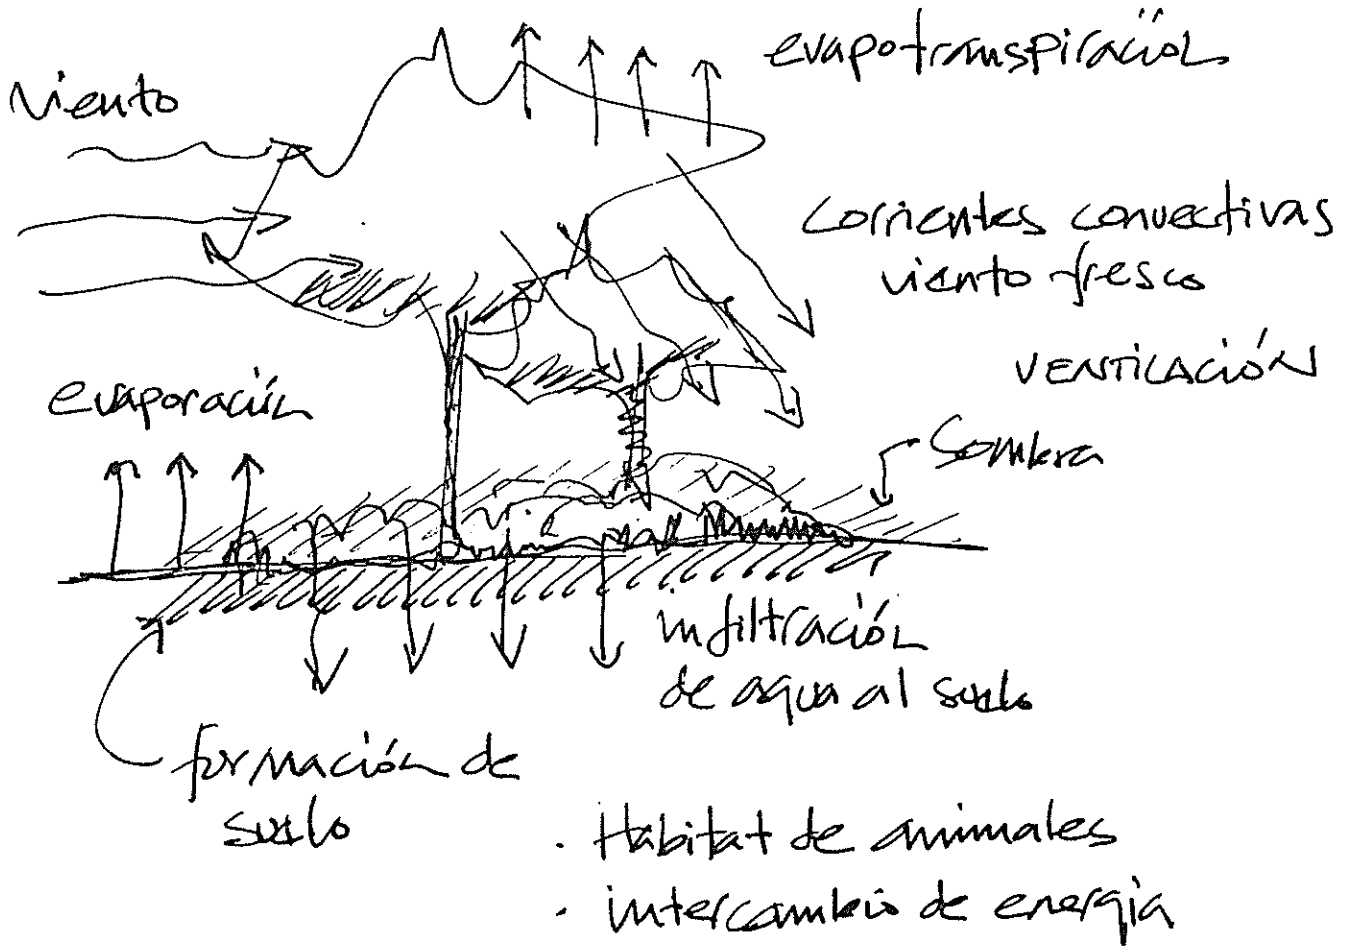 evapotranspiración
viento
corrientes convectivas
viento fresco
VENTILACIÓN
evaporación
Sombra
infiltración
de agua al suelo
formación de
suelo
· Hábitat de animales
· intercambio de energia